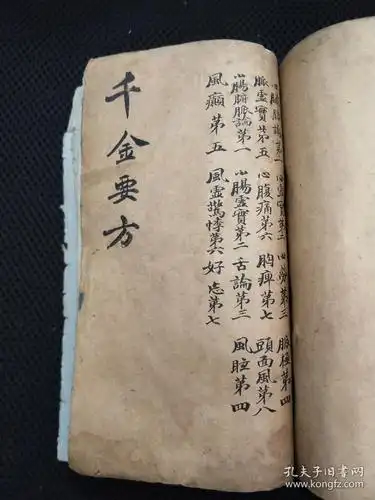 心勞第三 脈極第四
脈虛實第五 心腹痛第六 胸痺第七 頭面風第八
小腸腑脈論第一 小腸虛實第二 舌論第三 風眩第四
風癲第五 風虛驚悸第六 好忘第七
千金要方
孔夫子旧书网
kongfz.com